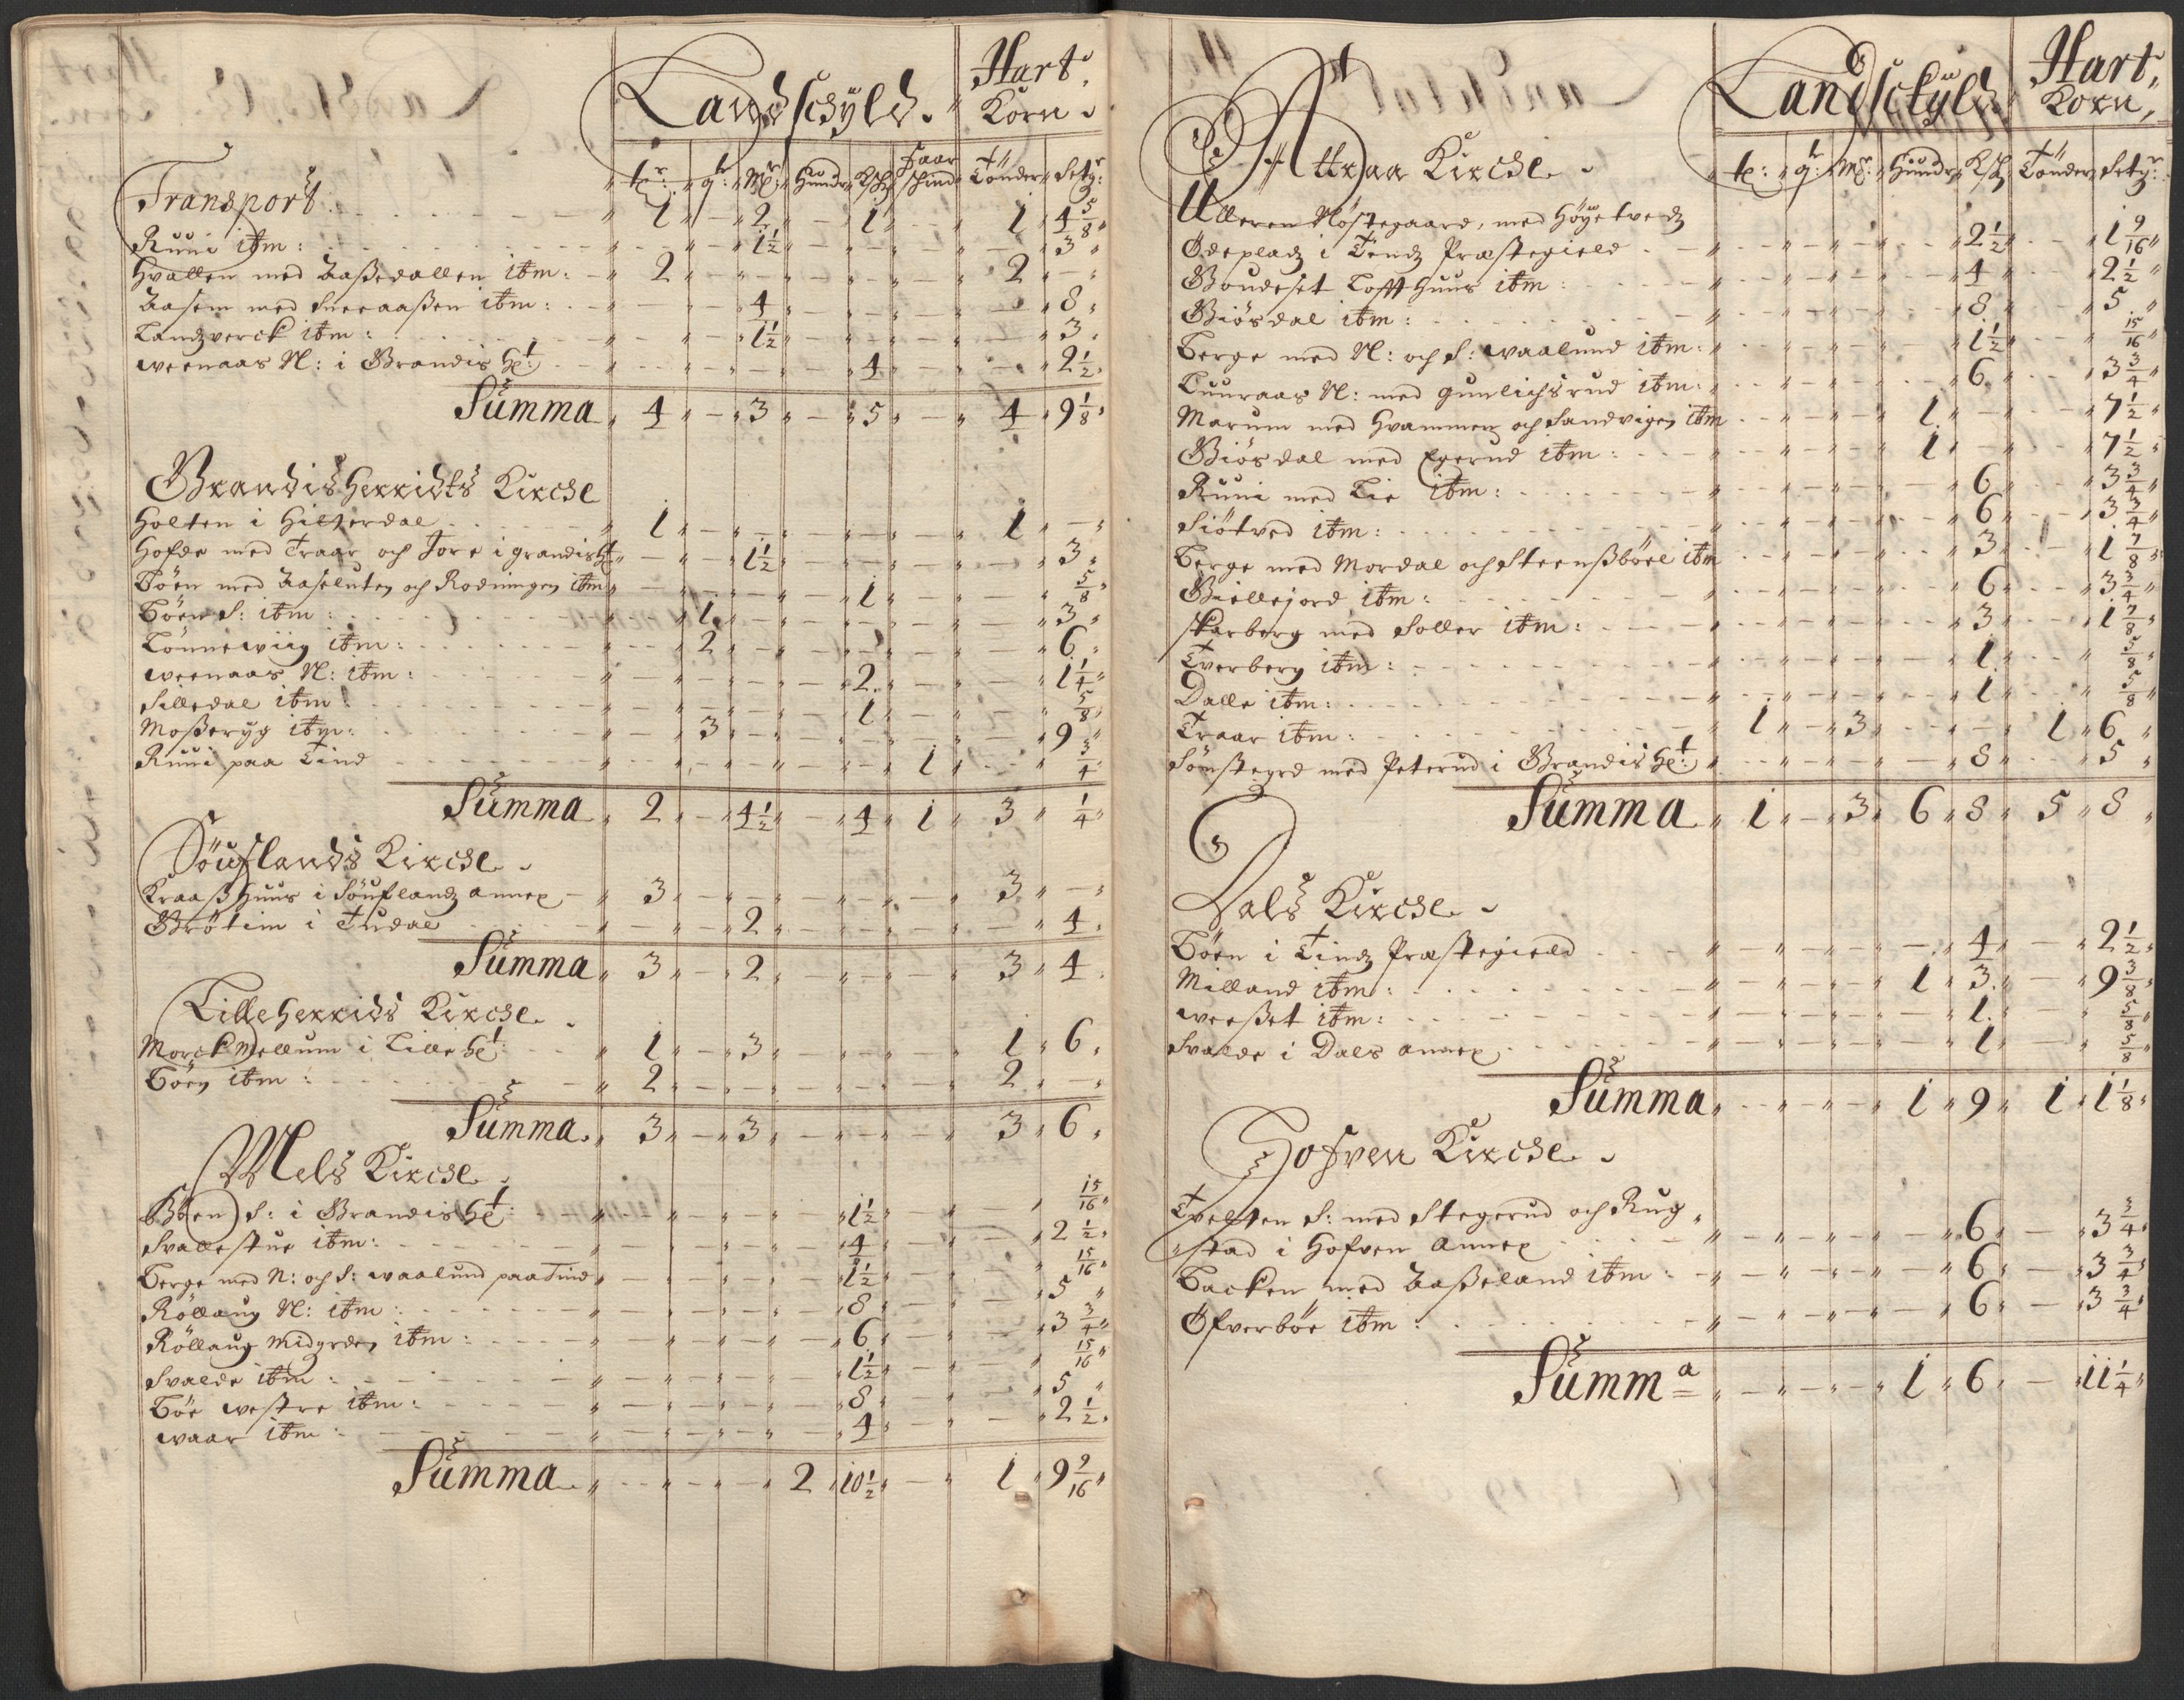 Landschyld. Hart Korn
tr: qr: Mr: Hundr Ksch faar schind Tönder Setgr:
Transport 1 2 1 1 4 5/8
Ruui itm: 1 1/2 3
Hvallen med Aaszedallen itm: 2 2
Aasem med Sneeaaszen itm: 4 8
Landzverck itm: 1 1/2 3
weenaas N: i Brandis Ht: 4 2 1/2
Summa 4 3 5 4 9 1/8
Brandisherridts Kirche
Holten i Hitterdal 1 1
Hofde med Traar och Jore i grandis Ht 1 1/2 3
Böen med Aaseluten och Rodningen itm 1 5/8
Böen S: itm: 1 3
Lönnewiig itm: 2 6
weenaas N: itm: 2 1 1/4
Silledal itm: 1 5/8
Moszeryg itm: 3 9
Ruui paa Tind 1 3/4
Summa 2 4 1/2 4 1 3 1/4
Söuflands Kirche
Kraaszhuus i Söuflandz annex 3 3
Grötim i Tudal 2 4
Summa 3 2 3 4
Lilleherrids Kirche
Morck Mellum i Lille Ht: 1 3 1 6
Böen itm: 2 2
Summa 3 3 3 6
Mels Kirche
Böen S: i Brandis Ht: 1 1/2 15/16
Svallestue itm: 4 2 1/2
Berge med N: och S: waalund paa Tind 1 1/2 15/16
Röllaug N: itm: 8 5
Röllaug Midgrden itm: 6 3 3/4
Svalde itm: 1 1/2 15/16
Böe westre itm: 8 5
waar itm 4 2 1/2
Summa 2 10 1/2 1 9 9/16
Landschyld Hart Korn
Attraa Kirche
tr: qr: Mr: Hundr Ksch Tönder Setgr:
Ulleren Nöstegaard, med Höÿetvedz
Ödepladz i Tindz Præstegield 2 1/2 1 9/16
Boudeset Loffthuus itm: 4 2 1/2
Giösdal itm: 8 5
Berge med N: och S: waalund itm: 1 1/2 15/16
Luuraas N: med gunlichsrud itm: 6 3 3/4
Marum med Hvammen och Sandvigen itm 1 7 1/2
Giösdal med Egerud itm: 1 7 1/2
Ruui med Lie itm: 6 3 3/4
Siötved itm: 6 3 3/4
Berge med Mordal och Steenszböel itm 3 1 7/8
Biellejord itm: 6 3 3/4
Skarberg med Soller itm: 3 1 7/8
Tverberg itm: 1 5/8
Dalle itm: 1 5/8
Traar itm: 1 3 1 6
Sönstegrd med Peterud i Brandis Ht: 8 5
Summa 1 3 6 8 5 8
Dals Kirche
Böen i Tindz Præstegield 4 2 1/2
Milland itm: 1 3 9 3/8
weeszet itm: 1 5/8
Svalde i Dals annex 1 5/8
Summa 1 9 1 1 1/8
Hofven Kirche
Tvelten S: med Stegerud och Rug
stad i Hofven Annex 6 3 3/4
Backen med Aaszeland itm: 6 3 3/4
Öfverböe itm: 6 3 3/4
Summa 1 6 11 1/4